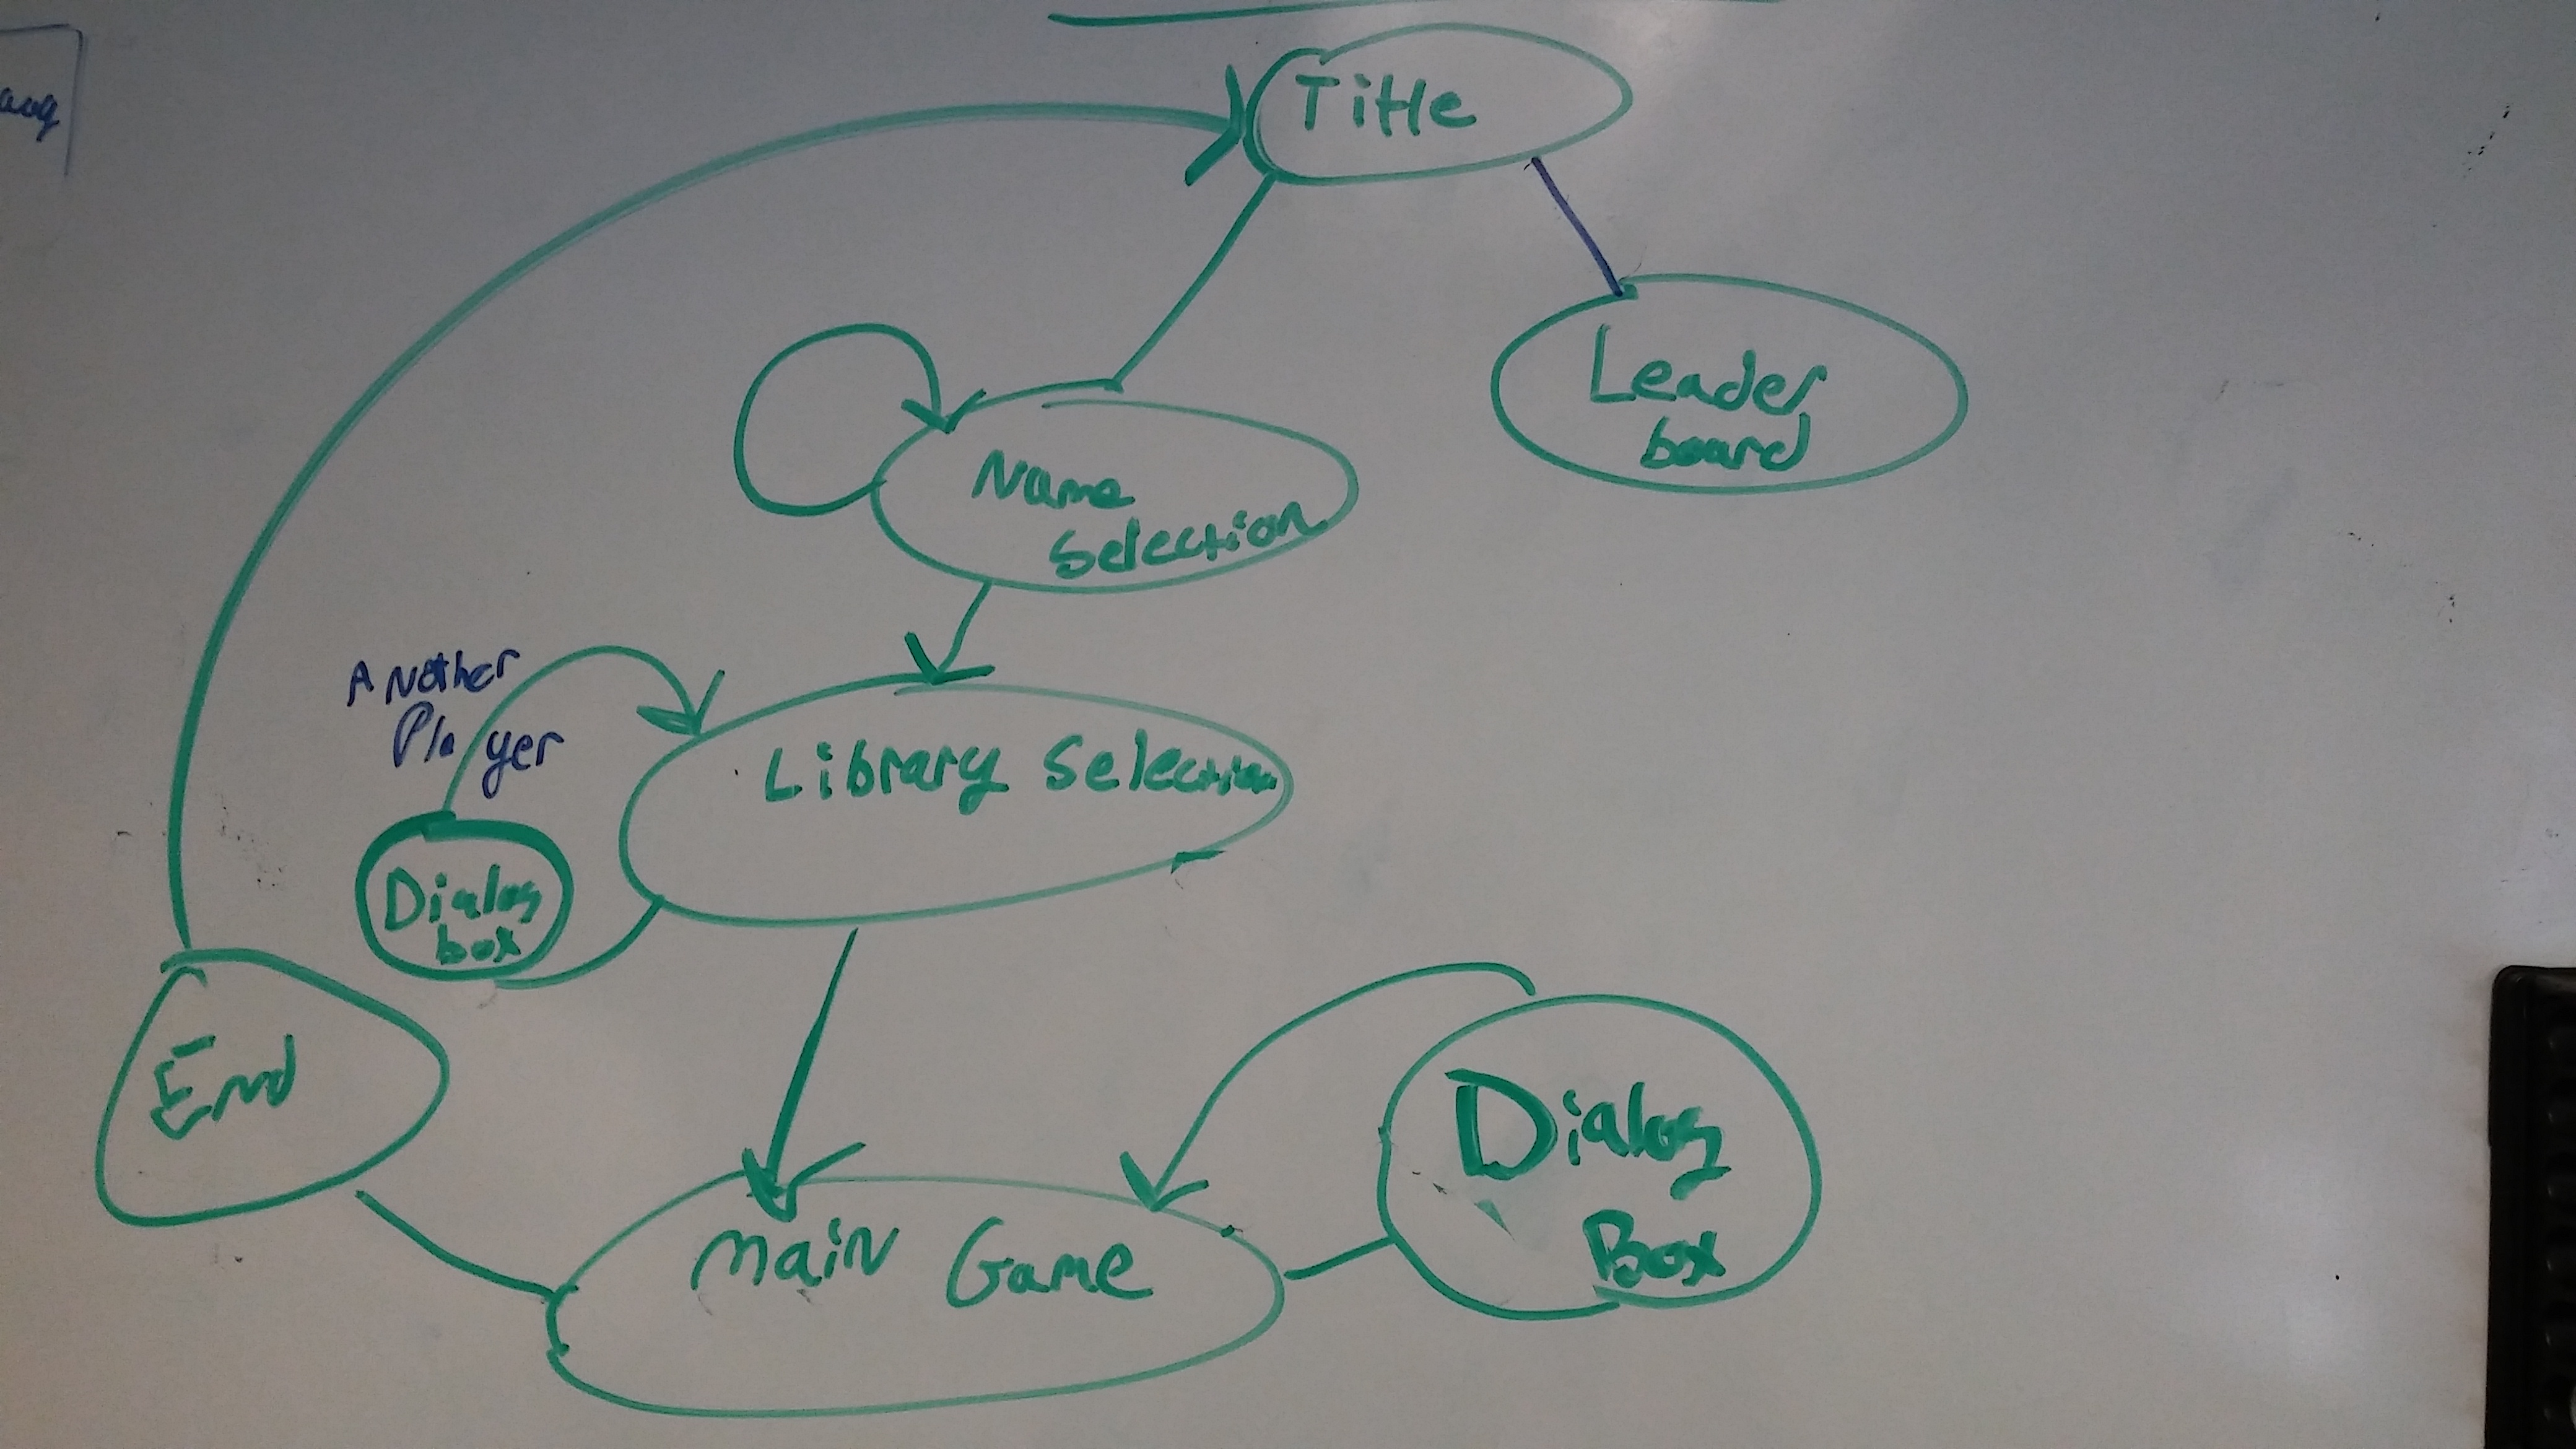 Title
Leader
board
Name
Selection
Another
Player
Library Selection
Dialog
box
End
Dialog
Box
Main Game